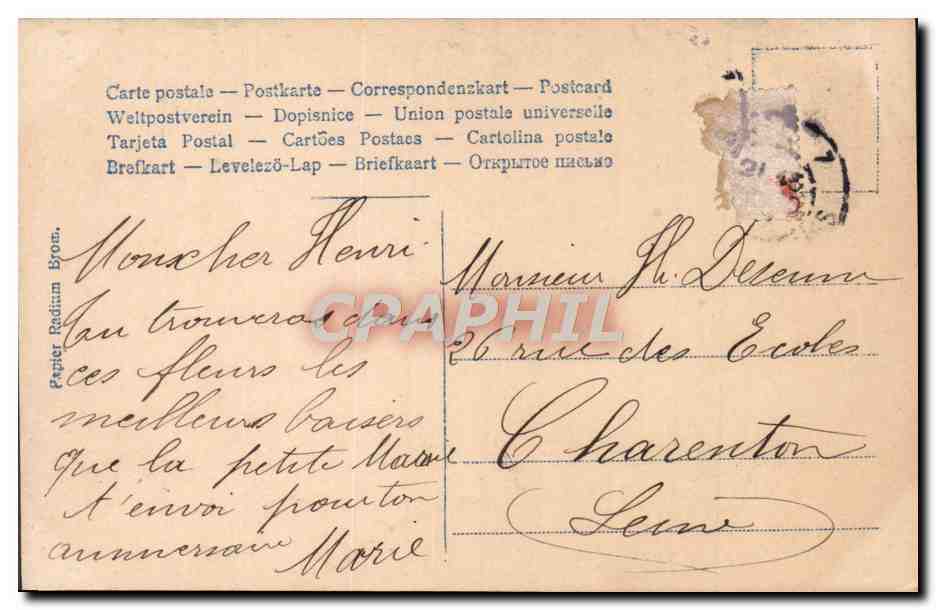 Carte postale — Postkarte — Correspondenzkart — Postcard
Weltpostverein — Dopisnice — Union postale universelle
Tarjeta Postal — Cartões Postaes — Cartolina postale
Brefkart — Levelező-Lap — Briefkaart — Открытое письмо
Papier Radium Brom.
Mon cher Henri
Tu trouveras dans
ces fleurs les
meilleurs baisers
que la petite Marie
t'envoi pour ton
anniversaire
Marie
Monsieur H.
26 rue des Ecoles
Charenton
Seine
CPAPHIL